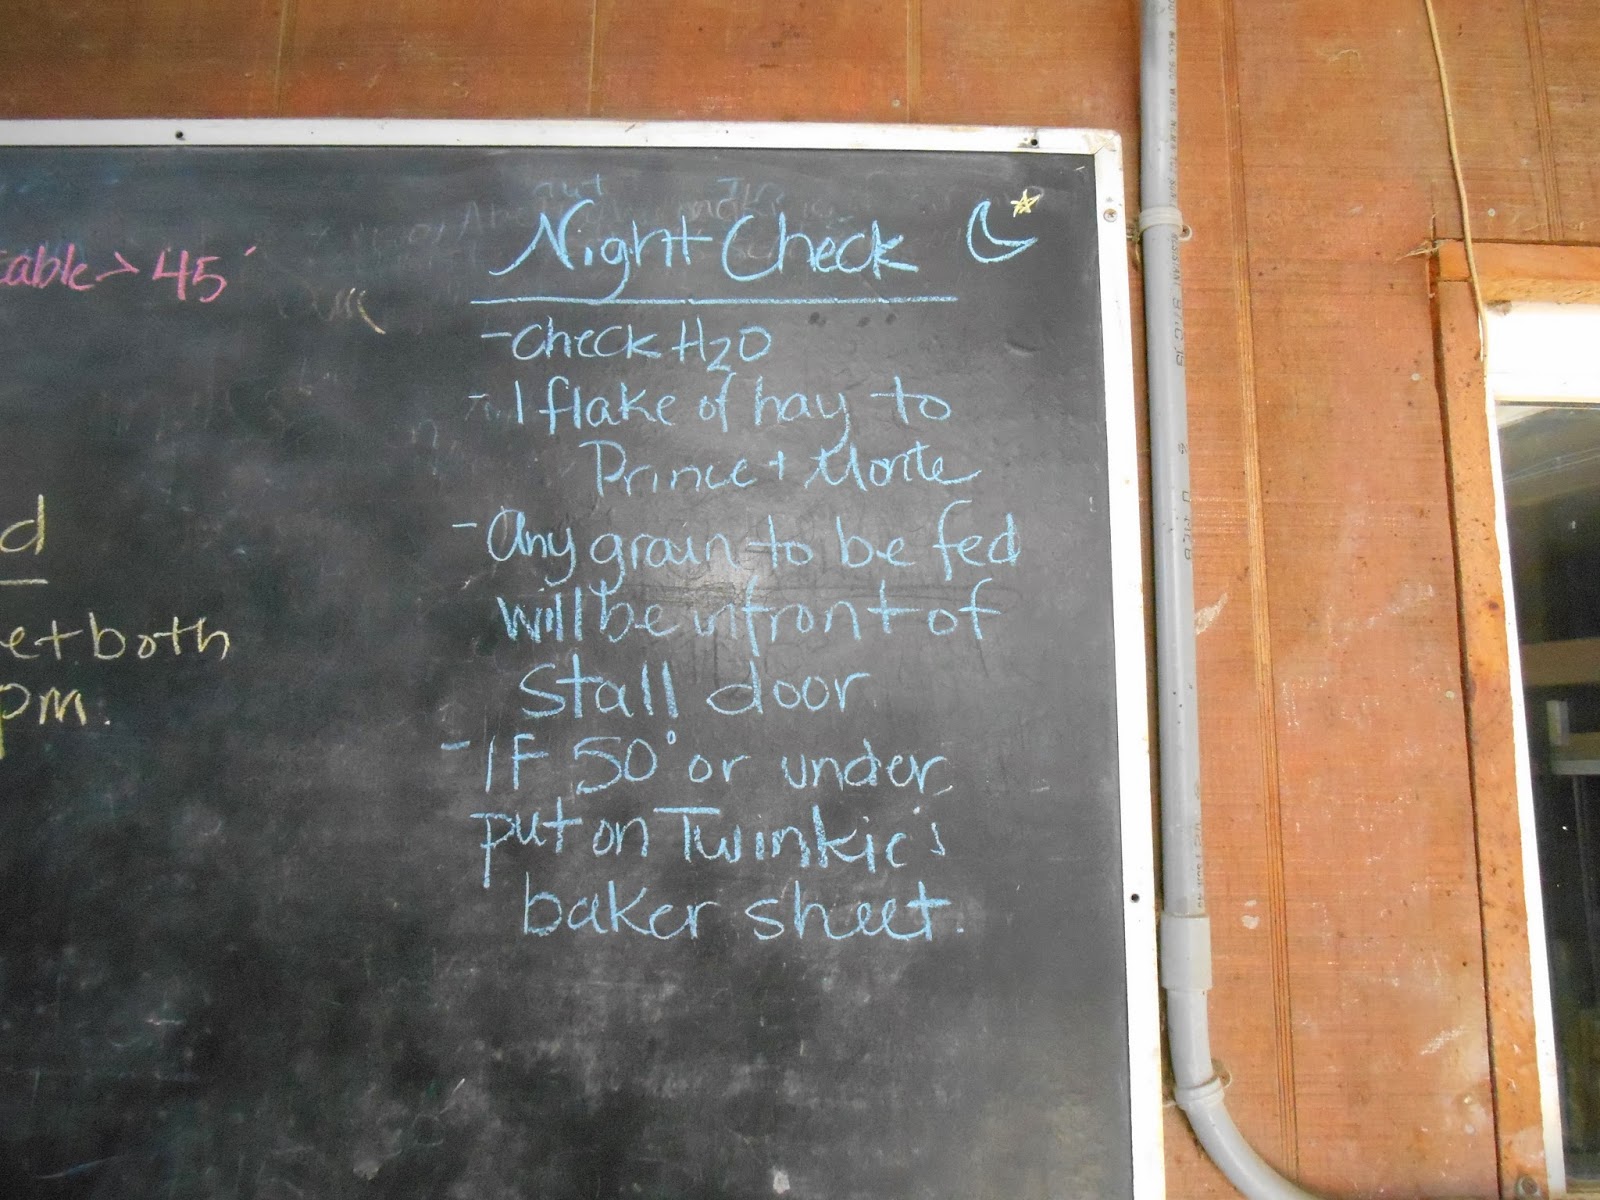 Night Check
- check H2O
- 1 flake of hay to
Prince + Monte
- Any grain to be fed
will be in front of
stall door
- IF 50° or under
put on Twinkie's
baker sheet.
table > 45'
d
e + both
pm.